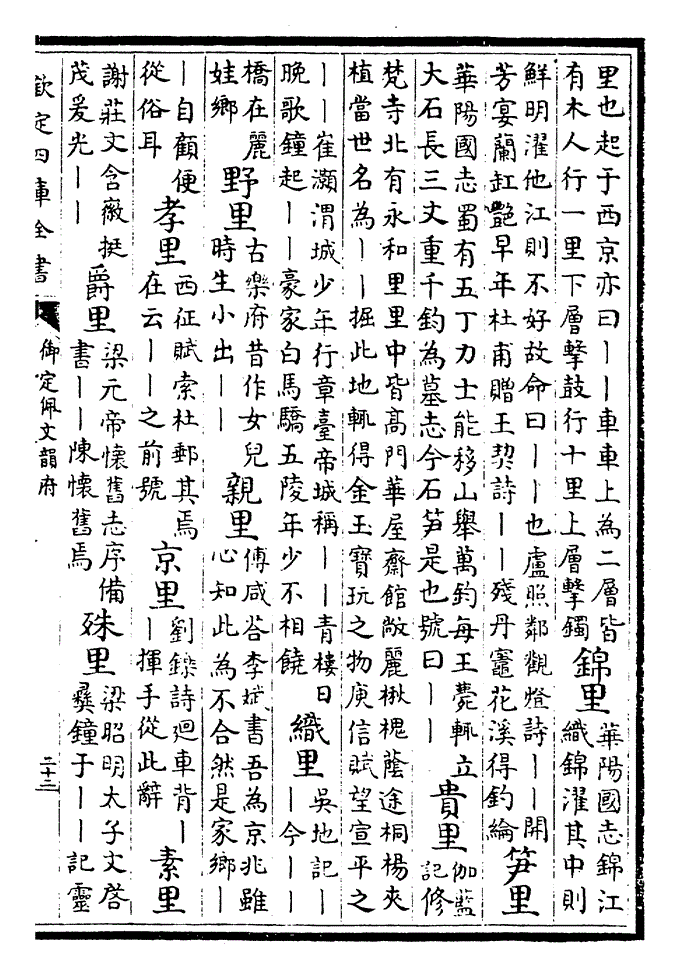 里也起于西京亦曰丨丨車車上為二層皆
有木人行一里下層擊鼓行十里上層擊鐲
錦里
華陽國志錦江
織錦濯其中則
鮮明濯他江則不好故命曰丨丨也盧照鄰觀燈詩丨丨開
芳宴蘭缸艷早年杜甫贈王契詩丨丨殘丹竈花溪得釣綸
笋里
華陽國志蜀有五丁力士能移山舉萬鈞每王薨輒立
大石長三丈重千鈞為墓志今石笋是也號曰丨丨
貴里
伽藍
記修
梵寺北有永和里里中皆高門華屋齋館敞麗楸槐蔭途桐楊夾
植當世名為丨丨掘此地輒得金玉寶玩之物庾信賦望宣平之
丨丨崔灝渭城少年行章臺帝城稱丨丨青樓日
晚歌鐘起丨丨豪家白馬驕五陵年少不相饒
織里
吳地記丨
丨今丨丨丨
橋在麗
娃鄉
野里
古樂府昔作女兒
時生小出丨丨
親里
傅咸答李斌書吾為京兆雖
心知此為不合然是家鄉丨
丨自顧便
從俗耳
孝里
西征賦索杜郵其焉
在云丨丨之前號
京里
劉鑠詩迴車背丨
丨揮手從此辭
素里
謝莊文含薇挺
茂爰光丨丨
爵里
梁元帝懷舊志序備
書丨丨陳懷舊焉
殊里
梁昭明太子文啓
彞鐘于丨丨記靈
欽定四庫全書
御定佩文韻府
二十二